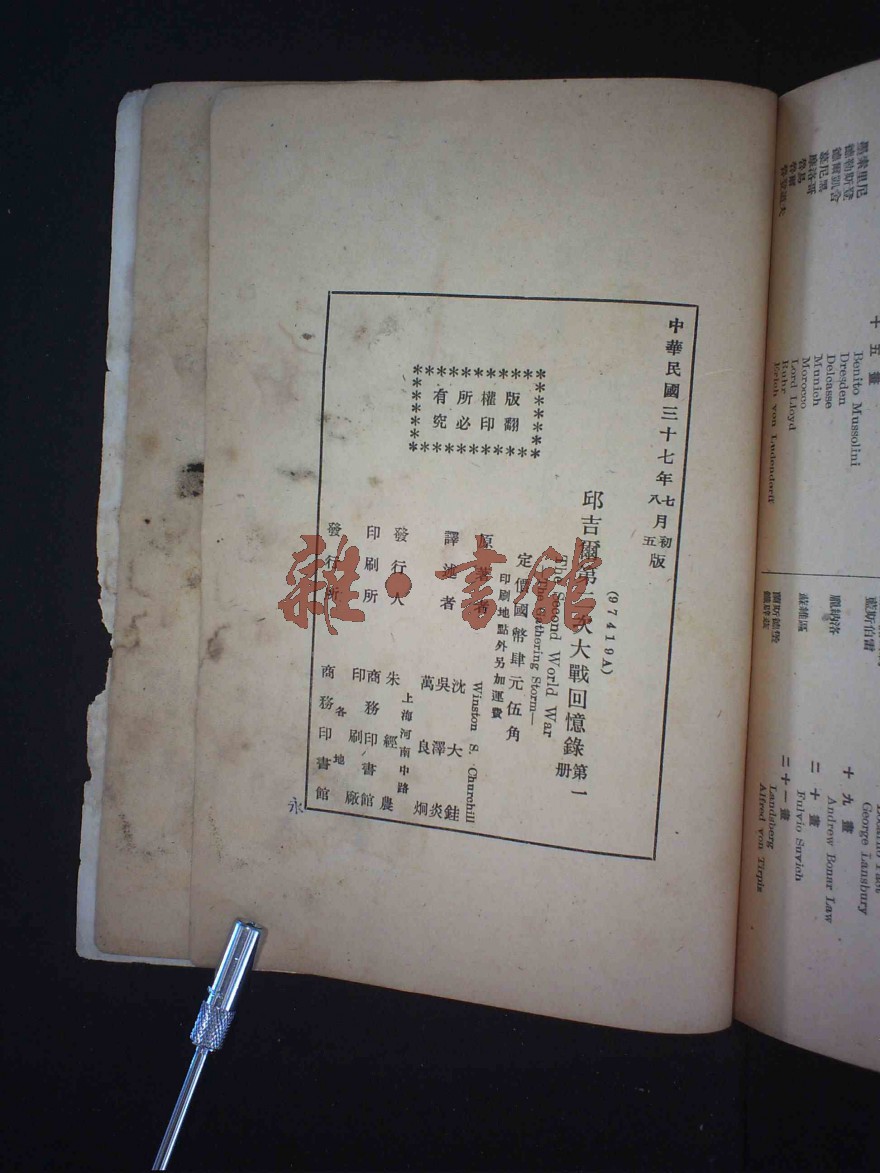 中華民國三十七年七月初版
八五
(97419A)
邱吉爾第二次大戰回憶錄第一册
The Second World War
—The Gathering Storm—
定價國幣肆元伍角
印刷地點外另加運費
版權所有
翻印必究
原著者 Winston S. Churchill
譯述者 沈大銈
吳澤炎
萬良炯
發行人 朱經農
上海河南中路
印刷所 商務印書館
印刷廠
發行所 各地
商務印書館
永
雜·書館
墨索里尼
德勒斯登
德爾凱舍
慕尼黑
摩洛哥
十五畫
Benito Mussolini
Dresden
Delcasse
Munich
Morocco
Lord Lloyd
Rohr
Erich von Ludendorff
藍斯伯雷
羅納洛
蘇維區
蘭斯德堡
十九畫
George Lansbury
Andrew Bonar Law
二十畫
Fulvio Suvich
二十一畫
Landsberg
Alfred von Tirpis